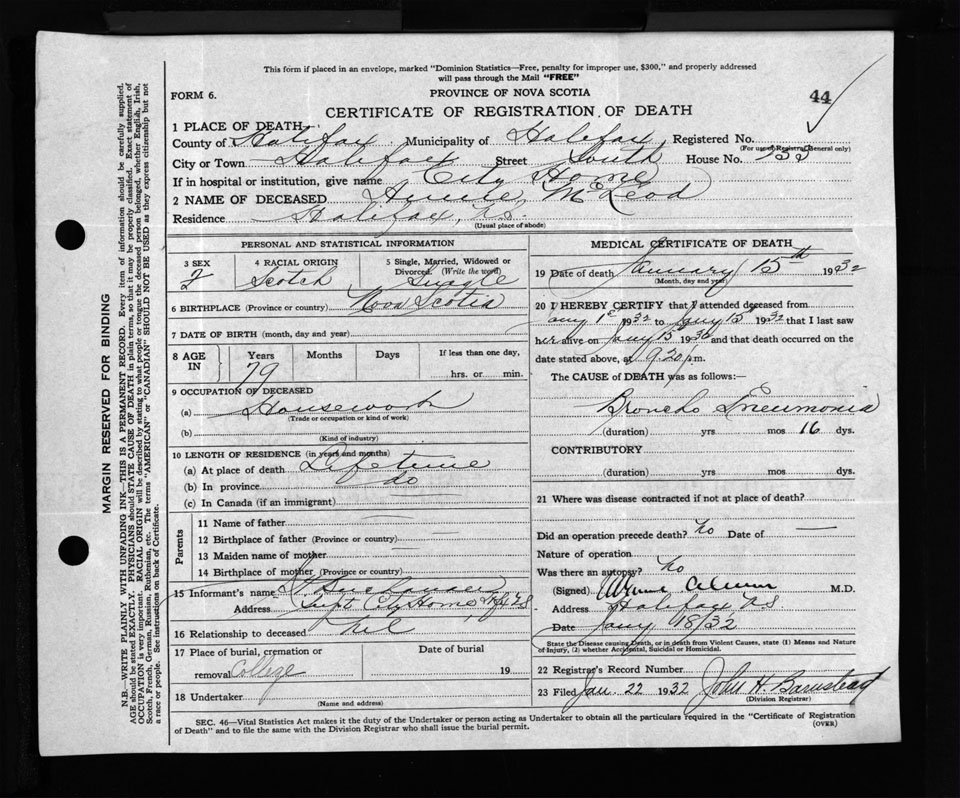 This form if placed in an envelope, marked "Dominion Statistics—Free, penalty for improper use, $300," and properly addressed
will pass through the Mail "FREE"
FORM 6.
PROVINCE OF NOVA SCOTIA
44
CERTIFICATE OF REGISTRATION OF DEATH
1 PLACE OF DEATH—
County of Halifax Municipality of Halifax Registered No.
(For use of Registrar General only)
City or Town Halifax Street South House No. 153
If in hospital or institution, give name City Home
2 NAME OF DECEASED Annie McLeod
Residence Halifax, N.S.
(Usual place of abode)
PERSONAL AND STATISTICAL INFORMATION
3 SEX
F
4 RACIAL ORIGIN
Scotch
5 Single, Married, Widowed or
Divorced. (Write the word)
Single
6 BIRTHPLACE (Province or country) Nova Scotia
7 DATE OF BIRTH (month, day and year)
8 AGE IN
Years Months Days If less than one day,
79
hrs. or min.
9 OCCUPATION OF DECEASED
(a) Housework
(Trade or occupation or kind of work)
(b)
(Kind of industry)
10 LENGTH OF RESIDENCE (in years and months)
(a) At place of death Lifetime
(b) In province do
(c) In Canada (if an immigrant)
Parents
11 Name of father
12 Birthplace of father (Province or country)
13 Maiden name of mother
14 Birthplace of mother (Province or country)
15 Informant's name
Address Supt. City Home,
16 Relationship to deceased nil
17 Place of burial, cremation or
removal College
Date of burial
19
18 Undertaker
(Name and address)
MEDICAL CERTIFICATE OF DEATH
19 Date of death January 15th 1932
(Month, day and year)
20 I HEREBY CERTIFY that I attended deceased from
Jany 1st 1932 to Jany 15 1932 that I last saw
her alive on Jany 15 1932 and that death occurred on the
date stated above, at 9.20 p.m.
The CAUSE of DEATH was as follows:—
Broncho Pneumonia
(duration) yrs mos 16 dys.
CONTRIBUTORY
(duration) yrs mos dys.
21 Where was disease contracted if not at place of death?
Did an operation precede death? no Date of —
Nature of operation
Was there an autopsy? no
(Signed) M.D.
Address Halifax N.S
Date Jany 18/32
State the Disease causing Death, or in death from Violent Causes, state (1) Means and Nature
of Injury, (2) whether Accidental, Suicidal or Homicidal.
22 Registrar's Record Number
23 Filed Jan 22 1932 John H. Barnstead
(Division Registrar)
SEC. 46—Vital Statistics Act makes it the duty of the Undertaker or person acting as Undertaker to obtain all the particulars required in the "Certificate of Registration
of Death" and to file the same with the Division Registrar who shall issue the burial permit.
(OVER)
MARGIN RESERVED FOR BINDING
N.B.—WRITE PLAINLY WITH UNFADING INK—THIS IS A PERMANENT RECORD. Every item of information should be carefully supplied.
AGE should be stated EXACTLY. PHYSICIANS should STATE CAUSE OF DEATH in plain terms, so that it may be properly classified. Exact statement of
OCCUPATION is very important. RACIAL ORIGIN will be described by stating to what people or tongue the deceased person belonged, whether English, Irish,
Scotch, French, German, Russian, Ruthenian, etc. The terms "AMERICAN" or "CANADIAN" SHOULD NOT BE USED as they express citizenship but not
a race or people. See instructions on back of Certificate.